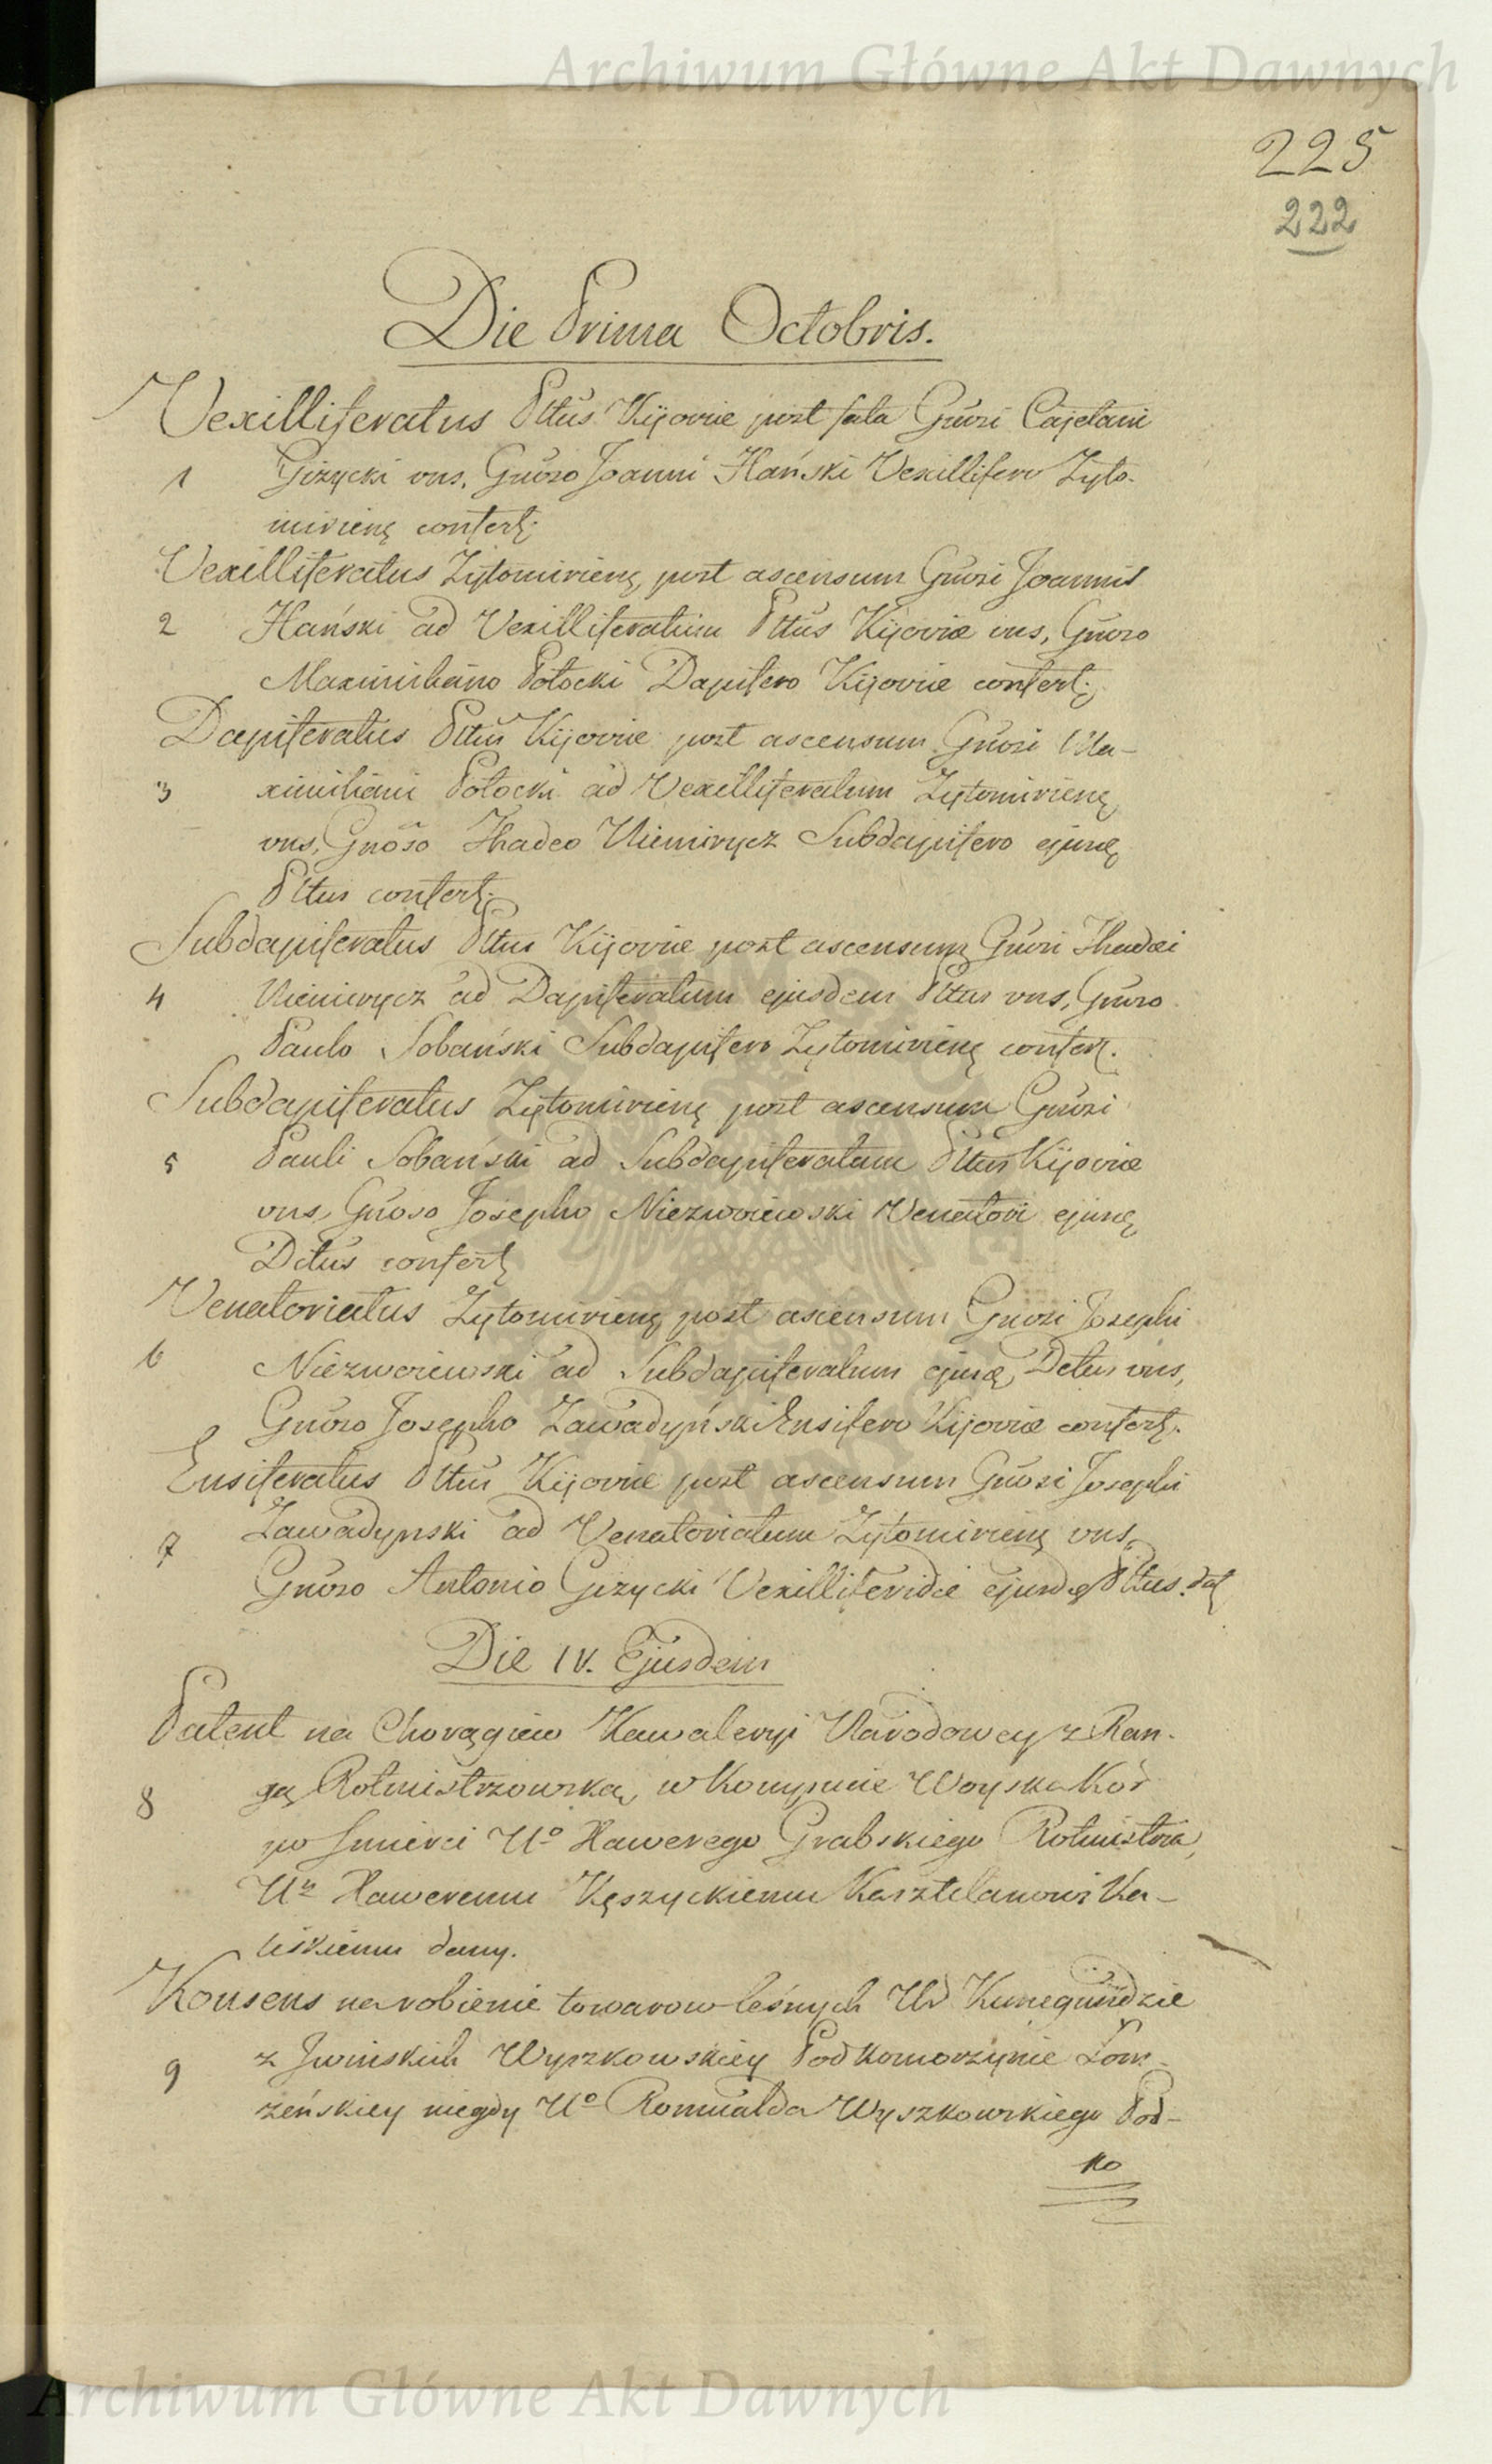 Archiwum Główne Akt Dawnych
225
222
Die Prima Octobris.
Vexilliferatus Pltus Kijoviæ post fata Gnosi Cajetani
1 Giżycki vns, Gnoso Joanni Hański Vexillifero Zyto-
mirienę confertę.
Vexilliferatus Zytomirienę, post ascensum Gnosi Joannis
2 Hański ad Vexilliferatum Pltus Kijoviæ vns, Gnoso
Maximiliano Potocki Dapifero Kijoviæ confertę.
Dapiferatus Pltus Kijoviæ post ascensum Gnosi Ma-
3 ximiliani Potocki ad Vexilliferatum Zytomirienę,
vns, Gnoso Thadeo Niemirycz Subdapifero ejusdę,
Pltus confertę.
Subdapiferatus Pltus Kijoviæ post ascensum Gnosi Thadei
4 Niemirycz ad Dapiferatum ejusdem Pltus vns, Gnoso
Paulo Sobański Subdapifero Zytomirienę confertę.
Subdapiferatus Zytomirienę post ascensum Gnosi
5 Pauli Sobański ad Subdapiferatum Pltus Kijoviæ
vns, Gnoso Josepho Niezworiewski Venatori ejusdę,
Dtus confertę
Venatoriatus Zytomirienę post ascensum Gnosi Josephi
6 Niezworiewski ad Subdapiferatum ejusdę, Dtus vns,
Gnoso Josepho Zawadyński Ensifero Kijoviæ confertę.
Ensiferatus Pltus Kijoviæ post ascensum Gnosi Josephi
7 Zawadynski ad Venatoriatum Zytomirienę vns,
Gnoso Antonio Giżycki Vexilliferidæ ejusdę Pltus. datę
Die IV. Ejusdem
Patent na Chorągiew Kawaleryi Narodowey z Ran-
8 gą Rotmistrzowską, w Kompucie Woyska Kor
po Smierci Uo Xawerego Grabskiego Rotmistrza,
Un Xaweremu Kęszyckiemu Kasztelanowi Ka-
liskiemu dany.
Konsens na robienie towarow leśnych Ur Kunegundzie
9 z Jwinskich Wyszkowskiey Podkomorzynie Łom-
żeńskiey niegdy Uo Romualda Wyszkowskiego Pod-
ko
Archiwum Główne Akt Dawnych